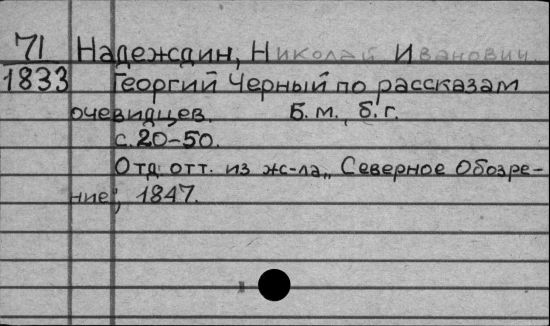 71 Надеждин, Николай Иванович
1833 Георгий Черный по рассказам
очевидцев. Б.м., б.г.
с. 20-50.
Отд. отт. из ж-ла „Северное Обозре-
ние", 1847.